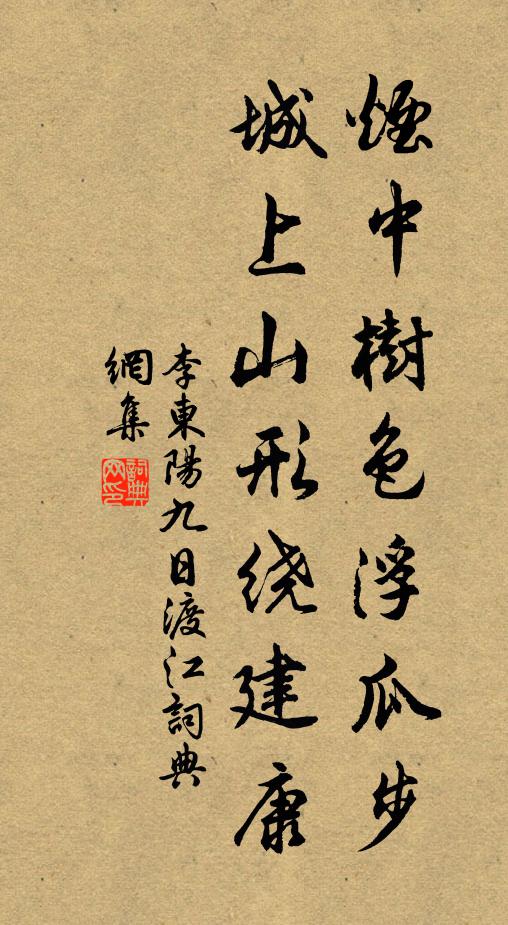 煙中樹色浮瓜步
城上山形绕建康
李東陽九日渡江詞典
網集
詞典
网印